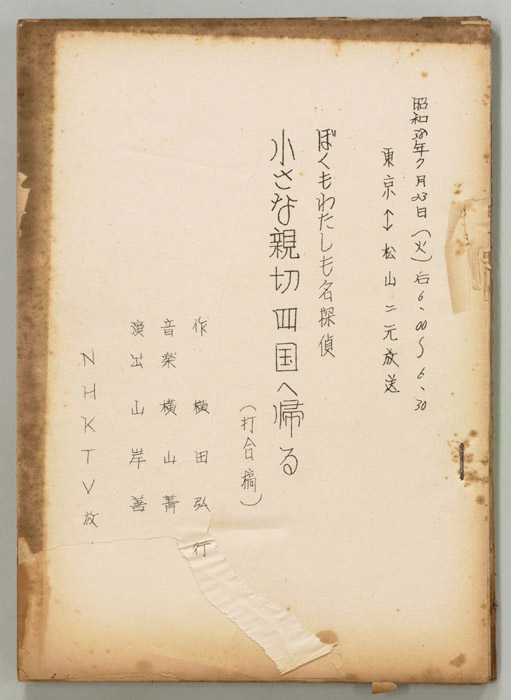 昭和38年7月23日(火)后6.00〜6.30
東京↔松山二元放送
ぼくもわたしも名探偵
小さな親切四国へ帰る
(打合稿)
作 横田弘行
音楽 横山菁
演出 山岸善
NHKTV放